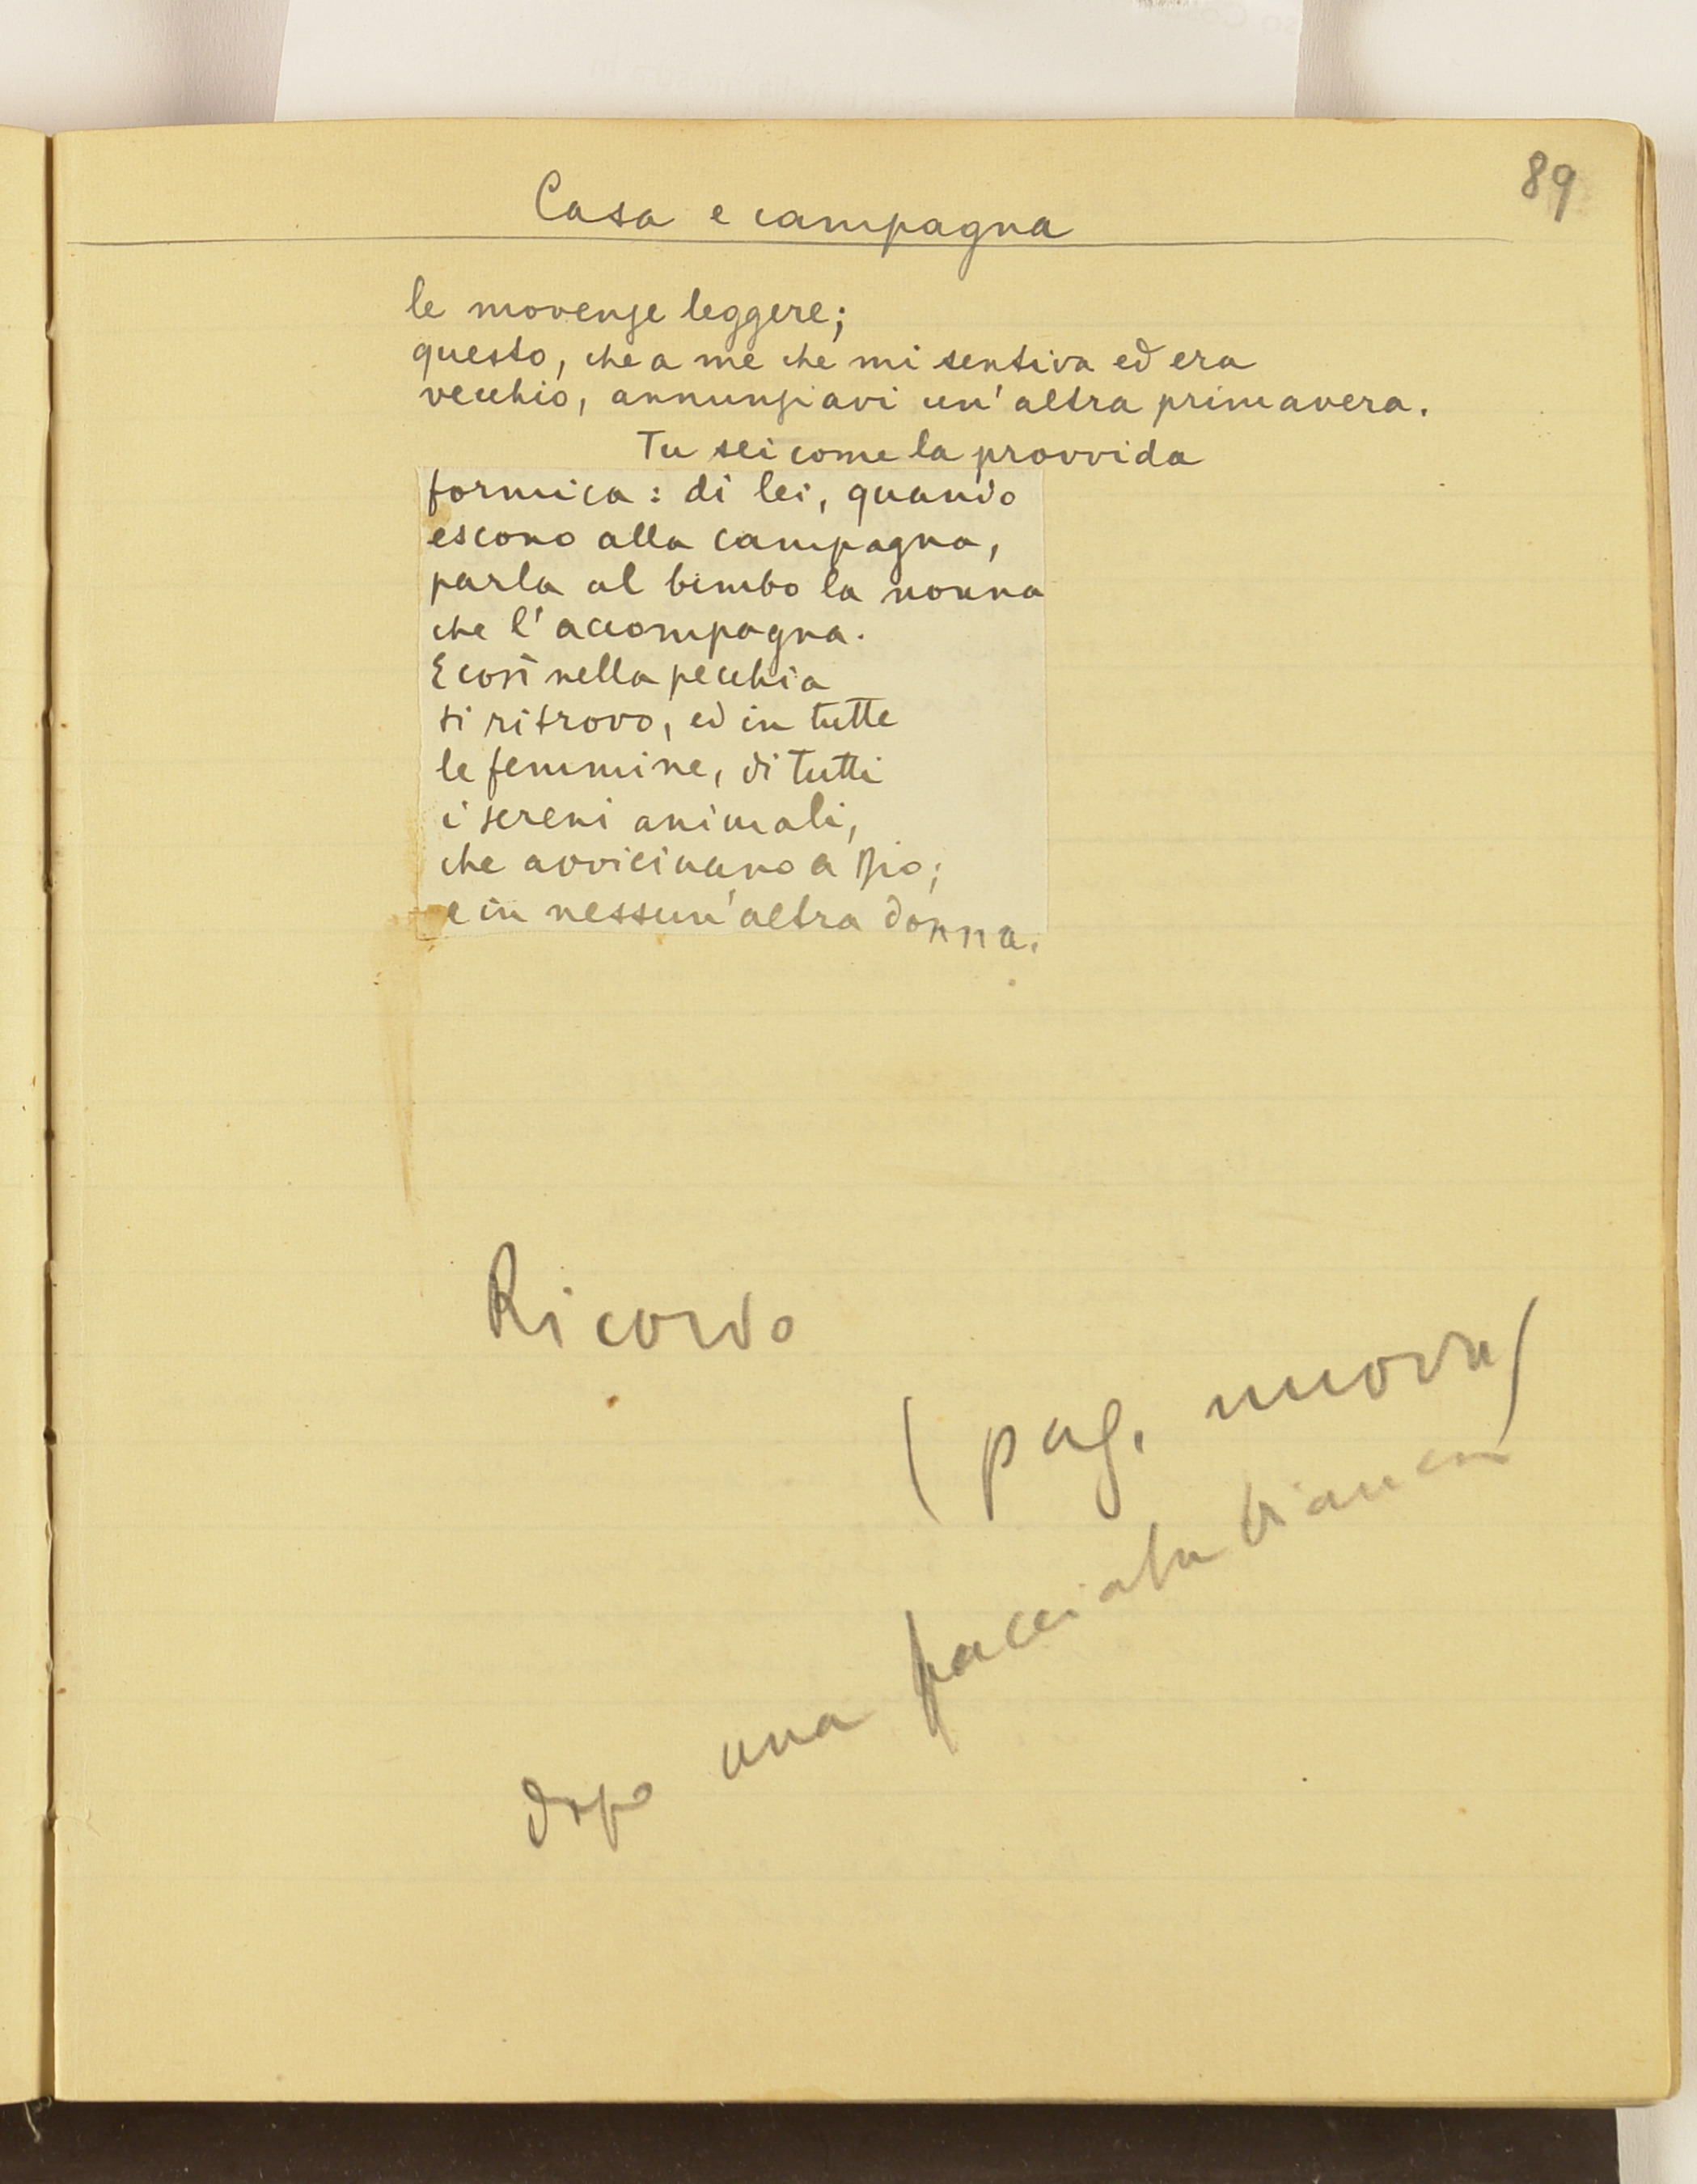 89
Casa e campagna
le movenze leggere;
questo, che a me che mi sentiva ed era
vecchio, annunziavi un'altra primavera.
Tu sei come la provvida
formica: di lei, quando
escono alla campagna,
parla al bimbo la nonna
che l'accompagna.
E così nella pecchia
ti ritrovo, ed in tutte
le femmine, di tutti
i sereni animali,
che avvicinano a Dio;
e in nessun'altra donna.
Ricordo
(pag. nuova)
dopo una facciata bianca